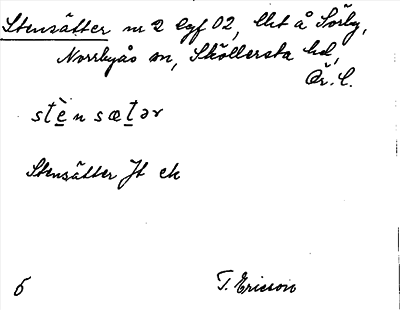 Stensätter nr 2 lgf 02, lht å Sörby,
Norrbyås sn, Sköllersta hd,
Ör. l.
stè̱nsæṯər
Stensätter Jt ek
6
T. Ericson